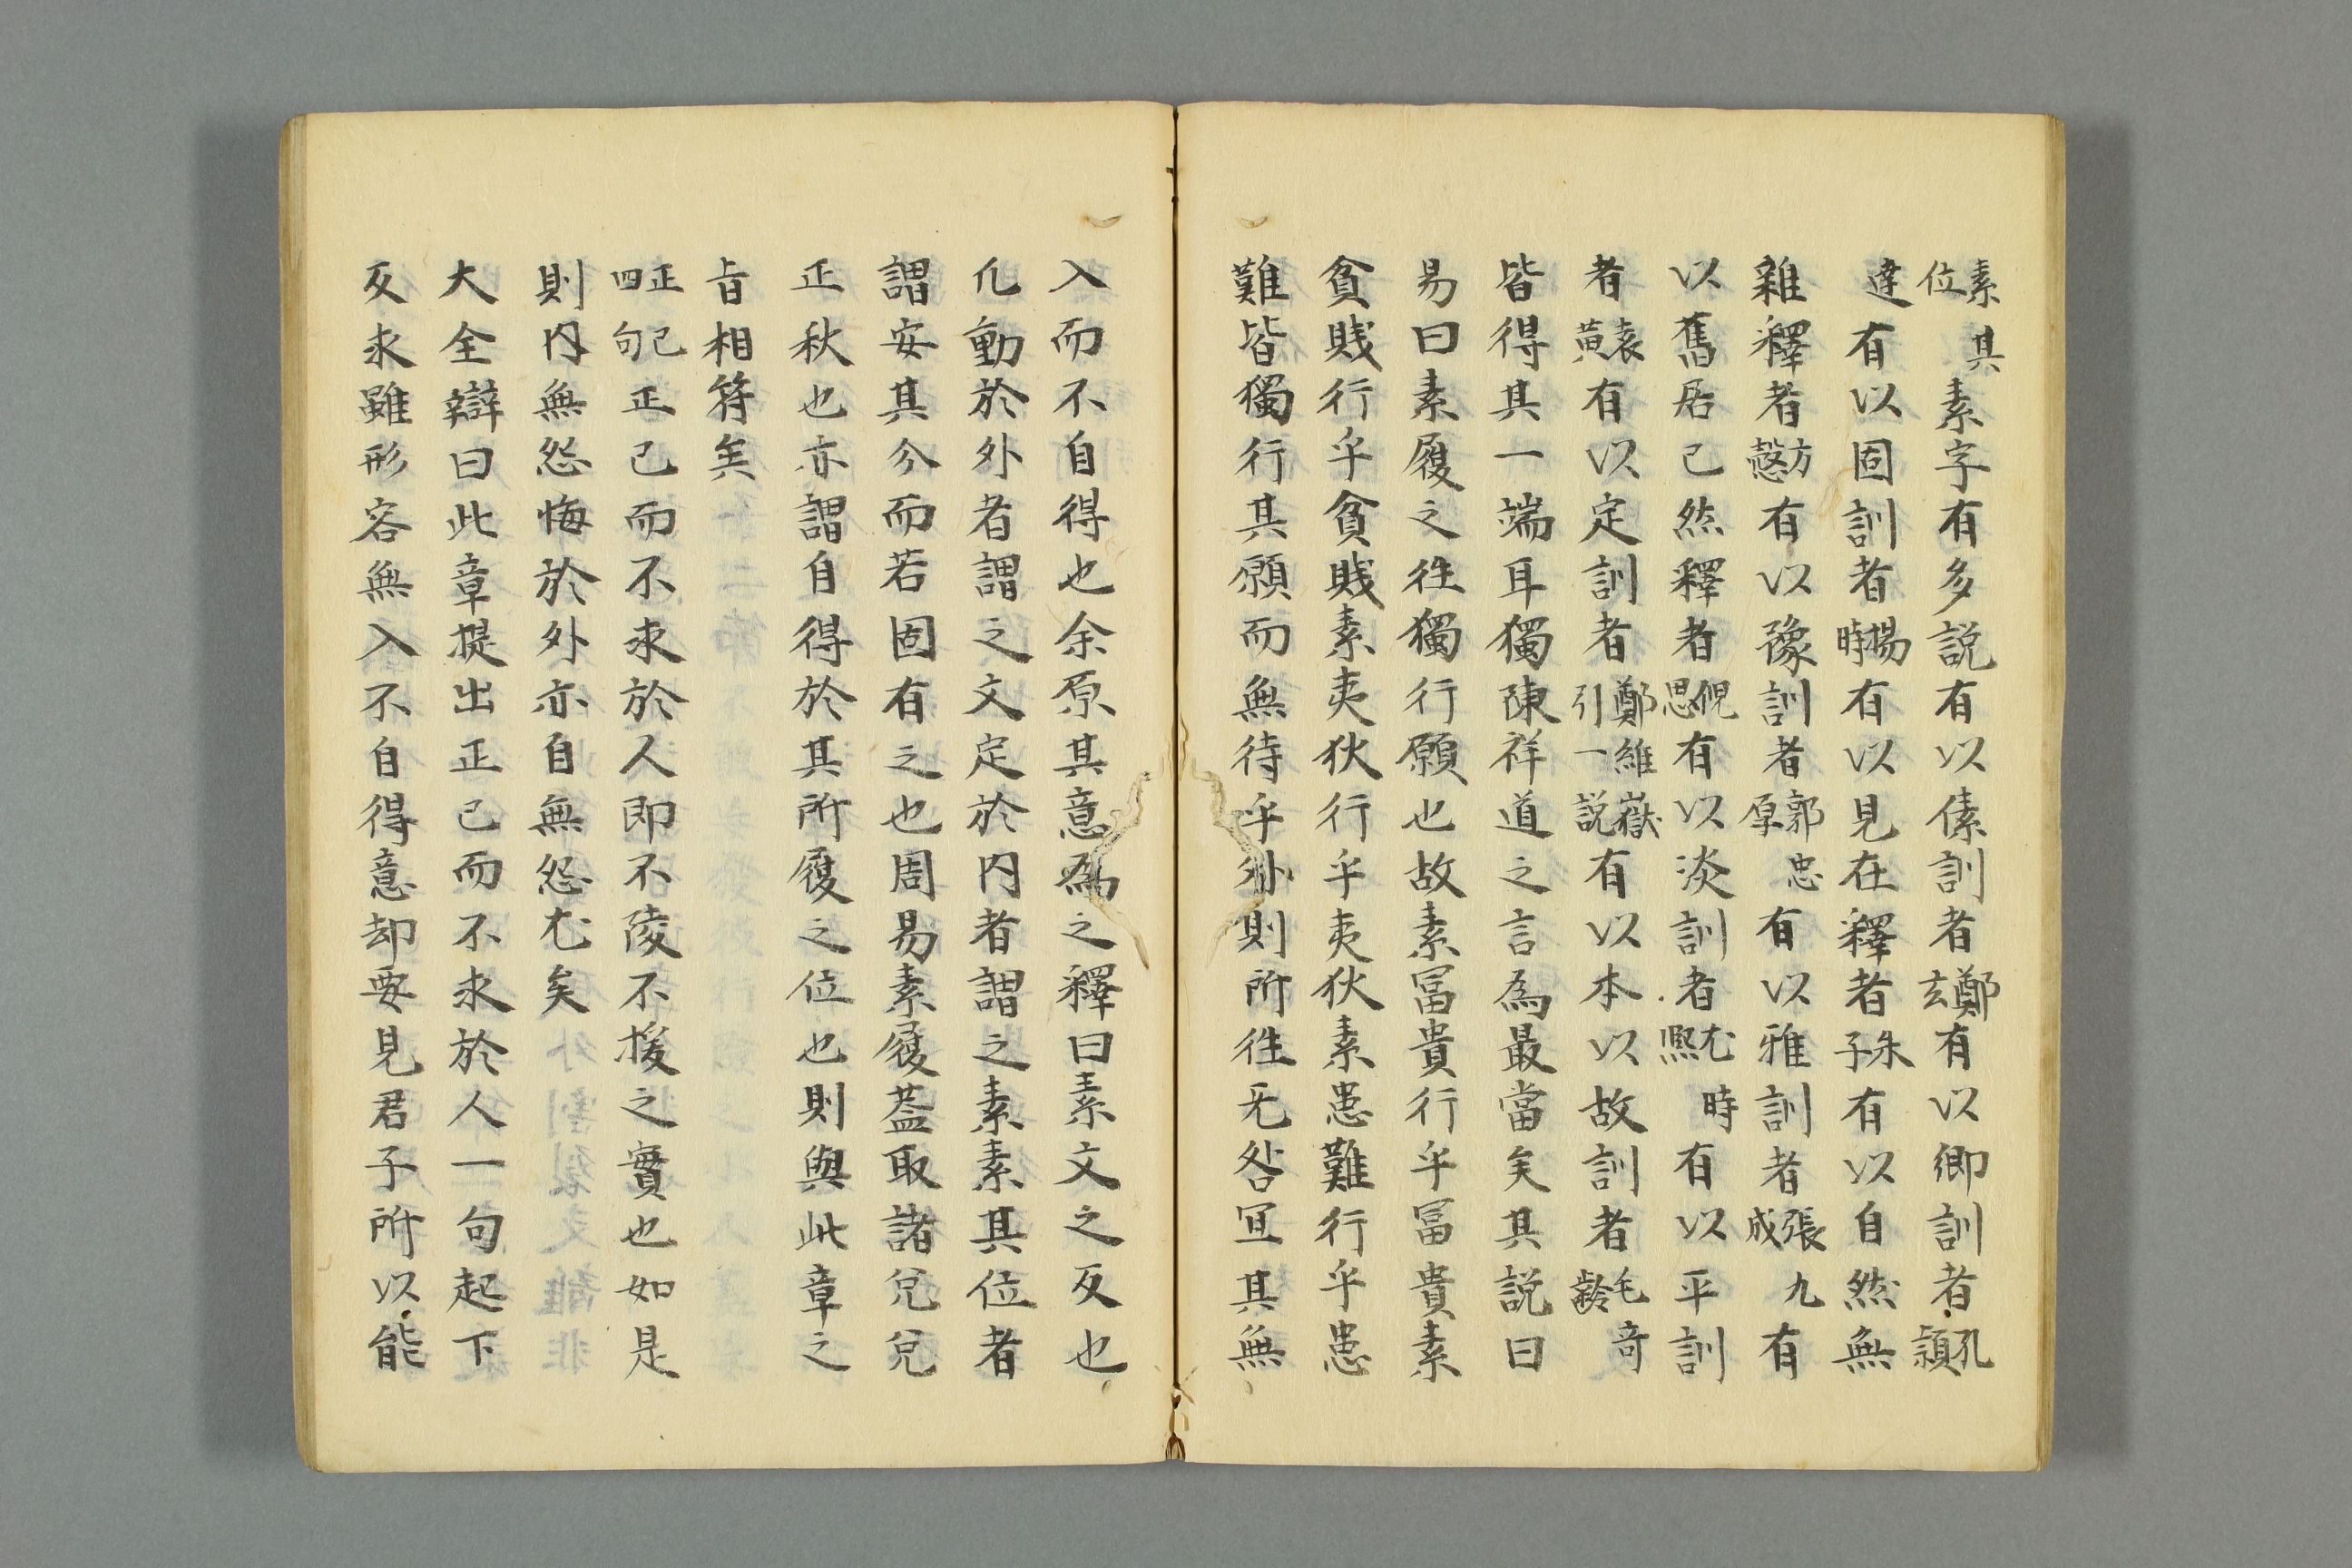 素其位素字有多說有以傃訓者鄭玄有以卿訓者孔穎
達有以固訓者楊時有以見在釋者朱子有以自然無
雜釋者方慤有以豫訓者郭忠厚有以雅訓者張九成有
以舊居已然釋者倪思有以淡訓者尤時熙有以平訓
者袁黃有以定訓者鄭維嶽引一說有以本以故訓者毛奇齡
皆得其一端耳獨陳祥道之言爲最當矣其說曰
易曰素履之往獨行願也故素冨貴行乎冨貴素
貧賤行乎貧賤素夷狄行乎夷狄素患難行乎患
難皆獨行其願而無待乎外則所往无咎冝其無
入而不自得也余原其意爲之釋曰素文之反也
凢動於外者謂之文定於內者謂之素素其位者
謂安其分而若固有之也周易素履葢取諸兌兌
正秋也亦謂自得於其所履之位也則與此章之
旨相符矣
正己四句正己而不求於人即不陵不援之實也如是
則內無怨悔於外亦自無怨尤矣
大全辯曰此章提出正己而不求於人一句起下
反求雖形容無入不自得意却要見君子所以能